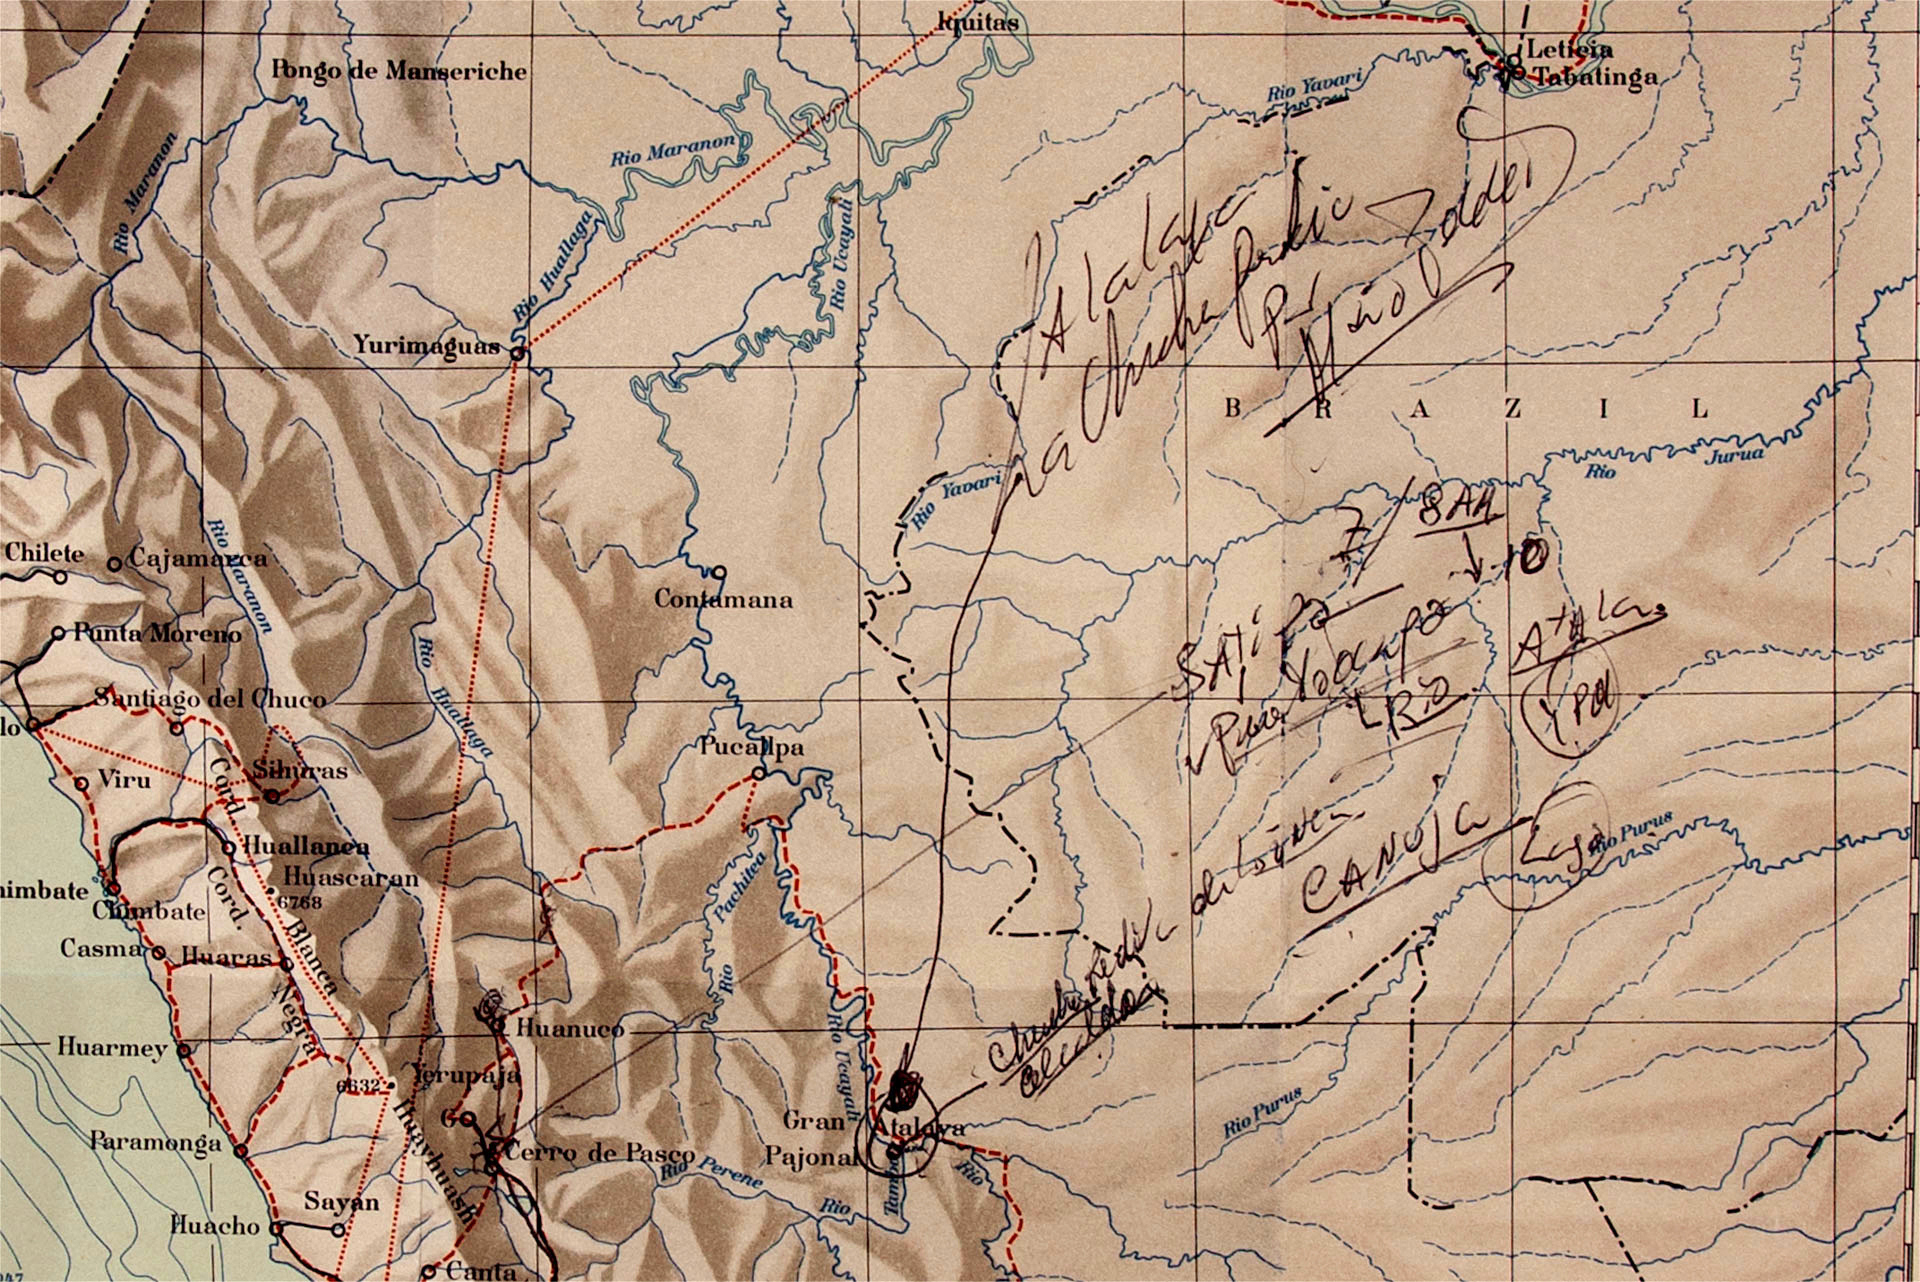 Iquitas
Pongo de Manseriche
Leticia
Tabatinga
Rio Yavari
Rio Maranon
Rio Maranon
Rio Huallaga
Rio Ucayali
Atalaya
La
por
Yurimaguas
BRAZIL
Rio Jurua
Rio Yavari
7/8AM
10
Chilete
Cajamarca
Rio Maranon
Contamana
SATiPO
Atala
Punta Moreno
Rio Huallaga
para
Rio
YPA
Santiago del Chuco
lo
Pucallpa
Viru
Sihuras
Cord.
Huallanca
Huascaran
6768
Rio Purus
CANUJA
himbate
Chimbate
Cord. Blanca
Casma
Huaras
Negra
Rio Pachitea
Huanuco
Huarmey
Rio Ucayali
Yerupaja
6632
Huayhuash
G
Gran
Pajonal
Atalaya
Rio Purus
Paramonga
Cerro de Pasco
Rio Perene
Rio
Tambo
Rio
Sayan
Huacho
Canta